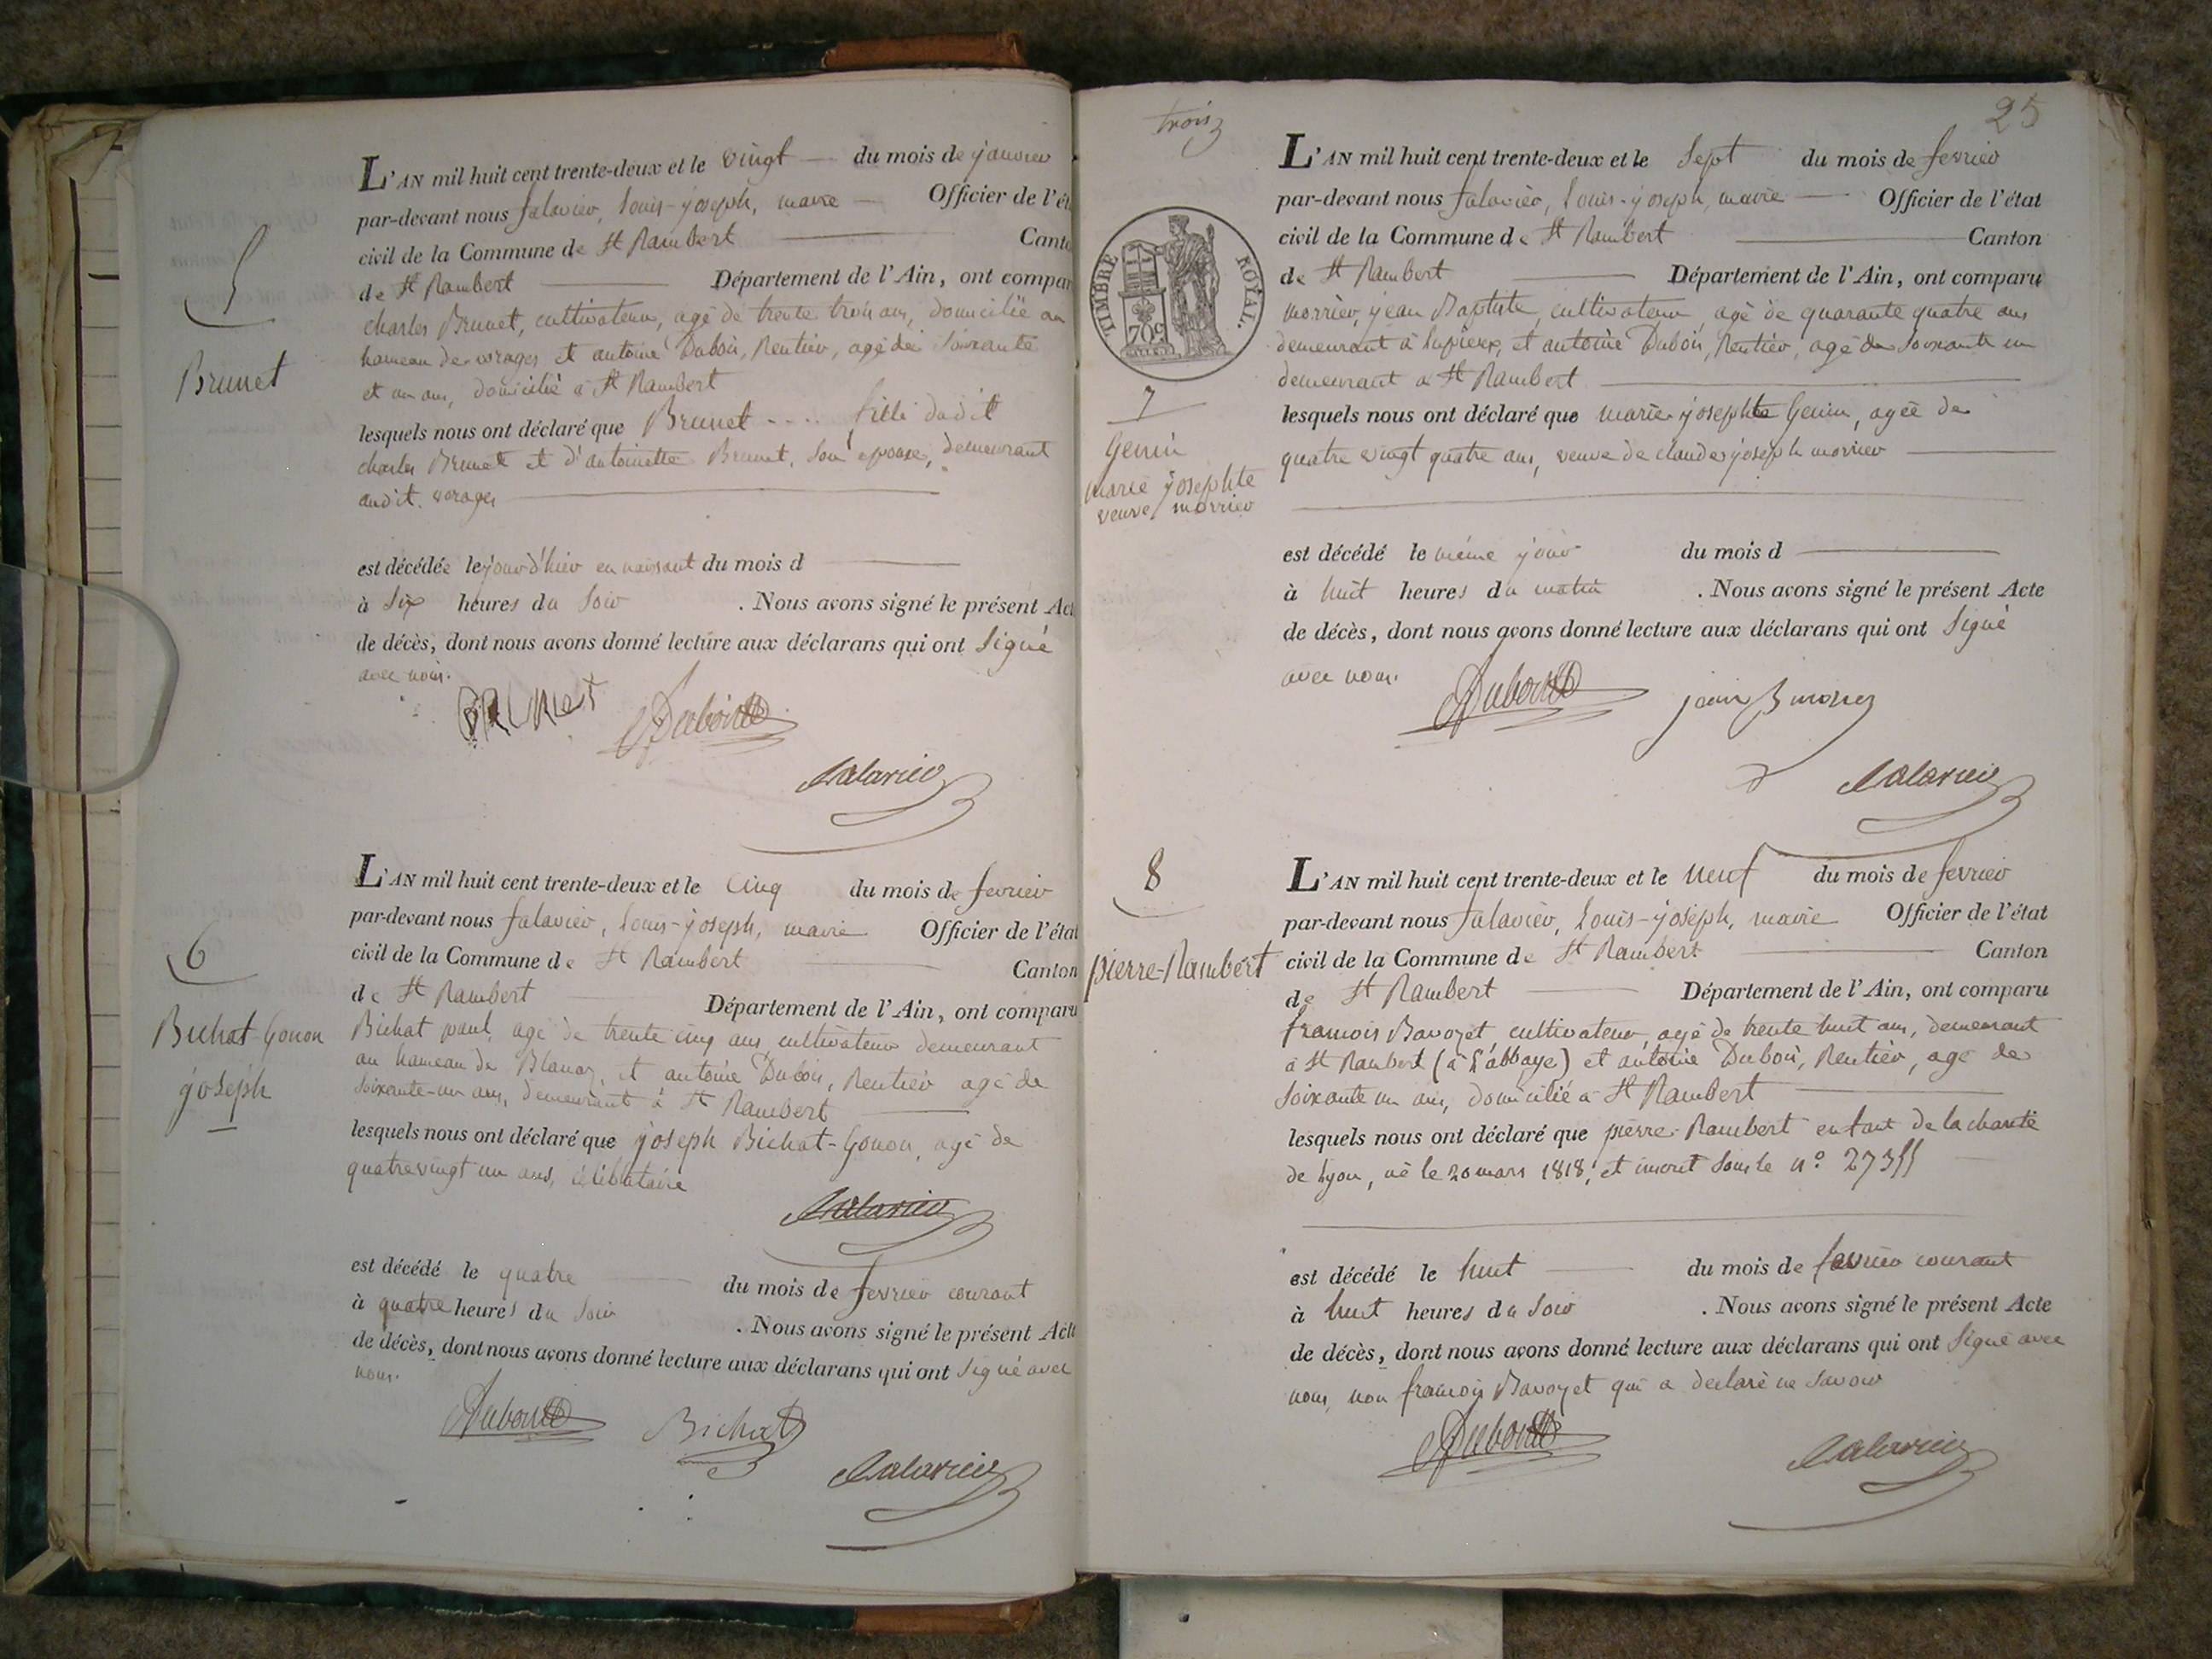 5
Brunet
L'AN mil huit cent trente-deux et le vingt du mois de janvier
par-devant nous falavier, louis-joseph, maire Officier de l'ét
civil de la Commune de St Rambert Canto
de St Rambert Département de l'Ain, ont compar
charles Brunet, cultivateur, agé de trente trois ans, domicilié au
hameau de vorages et antoine Dubois, Rentier, agé de soixante
et un ans, domicilié à St Rambert
lesquels nous ont déclaré que Brunet .... fille dudit
charles Brunet et d'antoinette Brunet, son epouse, demeurant
audit vorages
est décédée le jourd'hier en naissant du mois d
à six heures du soir . Nous avons signé le présent Act
de décès, dont nous avons donné lecture aux déclarans qui ont signé
avec nous.
BRUNET Dubois
falavier
6
Bichat-Gonon
joseph
L'AN mil huit cent trente-deux et le cinq du mois de fevrier
par-devant nous falavier, louis-joseph, maire Officier de l'état
civil de la Commune de St Rambert Canton
de St Rambert Département de l'Ain, ont comparu
Bichat paul, agé de trente cinq ans cultivateur demeurant
au hameau de Blanaz, et antoine Dubois, Rentier agé de
soixante-un ans, demeurant à St Rambert
lesquels nous ont déclaré que joseph Bichat-Gonon, agé de
quatrevingt un ans, célibataire
falavier
est décédé le quatre du mois de fevrier courant
à quatre heures du soir . Nous avons signé le présent Acte
de décès, dont nous avons donné lecture aux déclarans qui ont signé avec
nous.
Dubois Bichat
falavier
trois
25
TIMBRE ROYAL.
70c
7
Genin
marie josephte
veuve morrier
L'AN mil huit cent trente-deux et le sept du mois de fevrier
par-devant nous falavier, louis-joseph, maire Officier de l'état
civil de la Commune de St Rambert Canton
de St Rambert Département de l'Ain, ont comparu
morrier, jean Baptiste, cultivateur, agé de quarante quatre ans
demeurant à Supieux, et antoine Dubois, Rentier, agé de soixante un
demeurant à St Rambert
lesquels nous ont déclaré que marie josephte Genin, agée de
quatre vingt quatre ans, veuve de claude joseph morrier
est décédé le même jour du mois d
à huit heures du matin . Nous avons signé le présent Acte
de décès, dont nous avons donné lecture aux déclarans qui ont signé
avec nous.
Dubois
falavier
8
pierre-Rambert
L'AN mil huit cent trente-deux et le neuf du mois de fevrier
par-devant nous falavier, louis-joseph, maire Officier de l'état
civil de la Commune de St Rambert Canton
de St Rambert Département de l'Ain, ont comparu
francois Bavozet cultivateur, agé de trente huit ans, demeurant
à St Rambert (à l'abbaye) et antoine Dubois, Rentier, agé de
soixante un ans, domicilié à St Rambert
lesquels nous ont déclaré que pierre-Rambert enfant de la charité
de Lyon, né le 20 mars 1818, et inscrit sous le n°
est décédé le huit du mois de fevrier courant
à huit heures du soir . Nous avons signé le présent Acte
de décès, dont nous avons donné lecture aux déclarans qui ont signé avec
nous, non francois Bavozet qui a déclaré ne savoir
Dubois
falavier